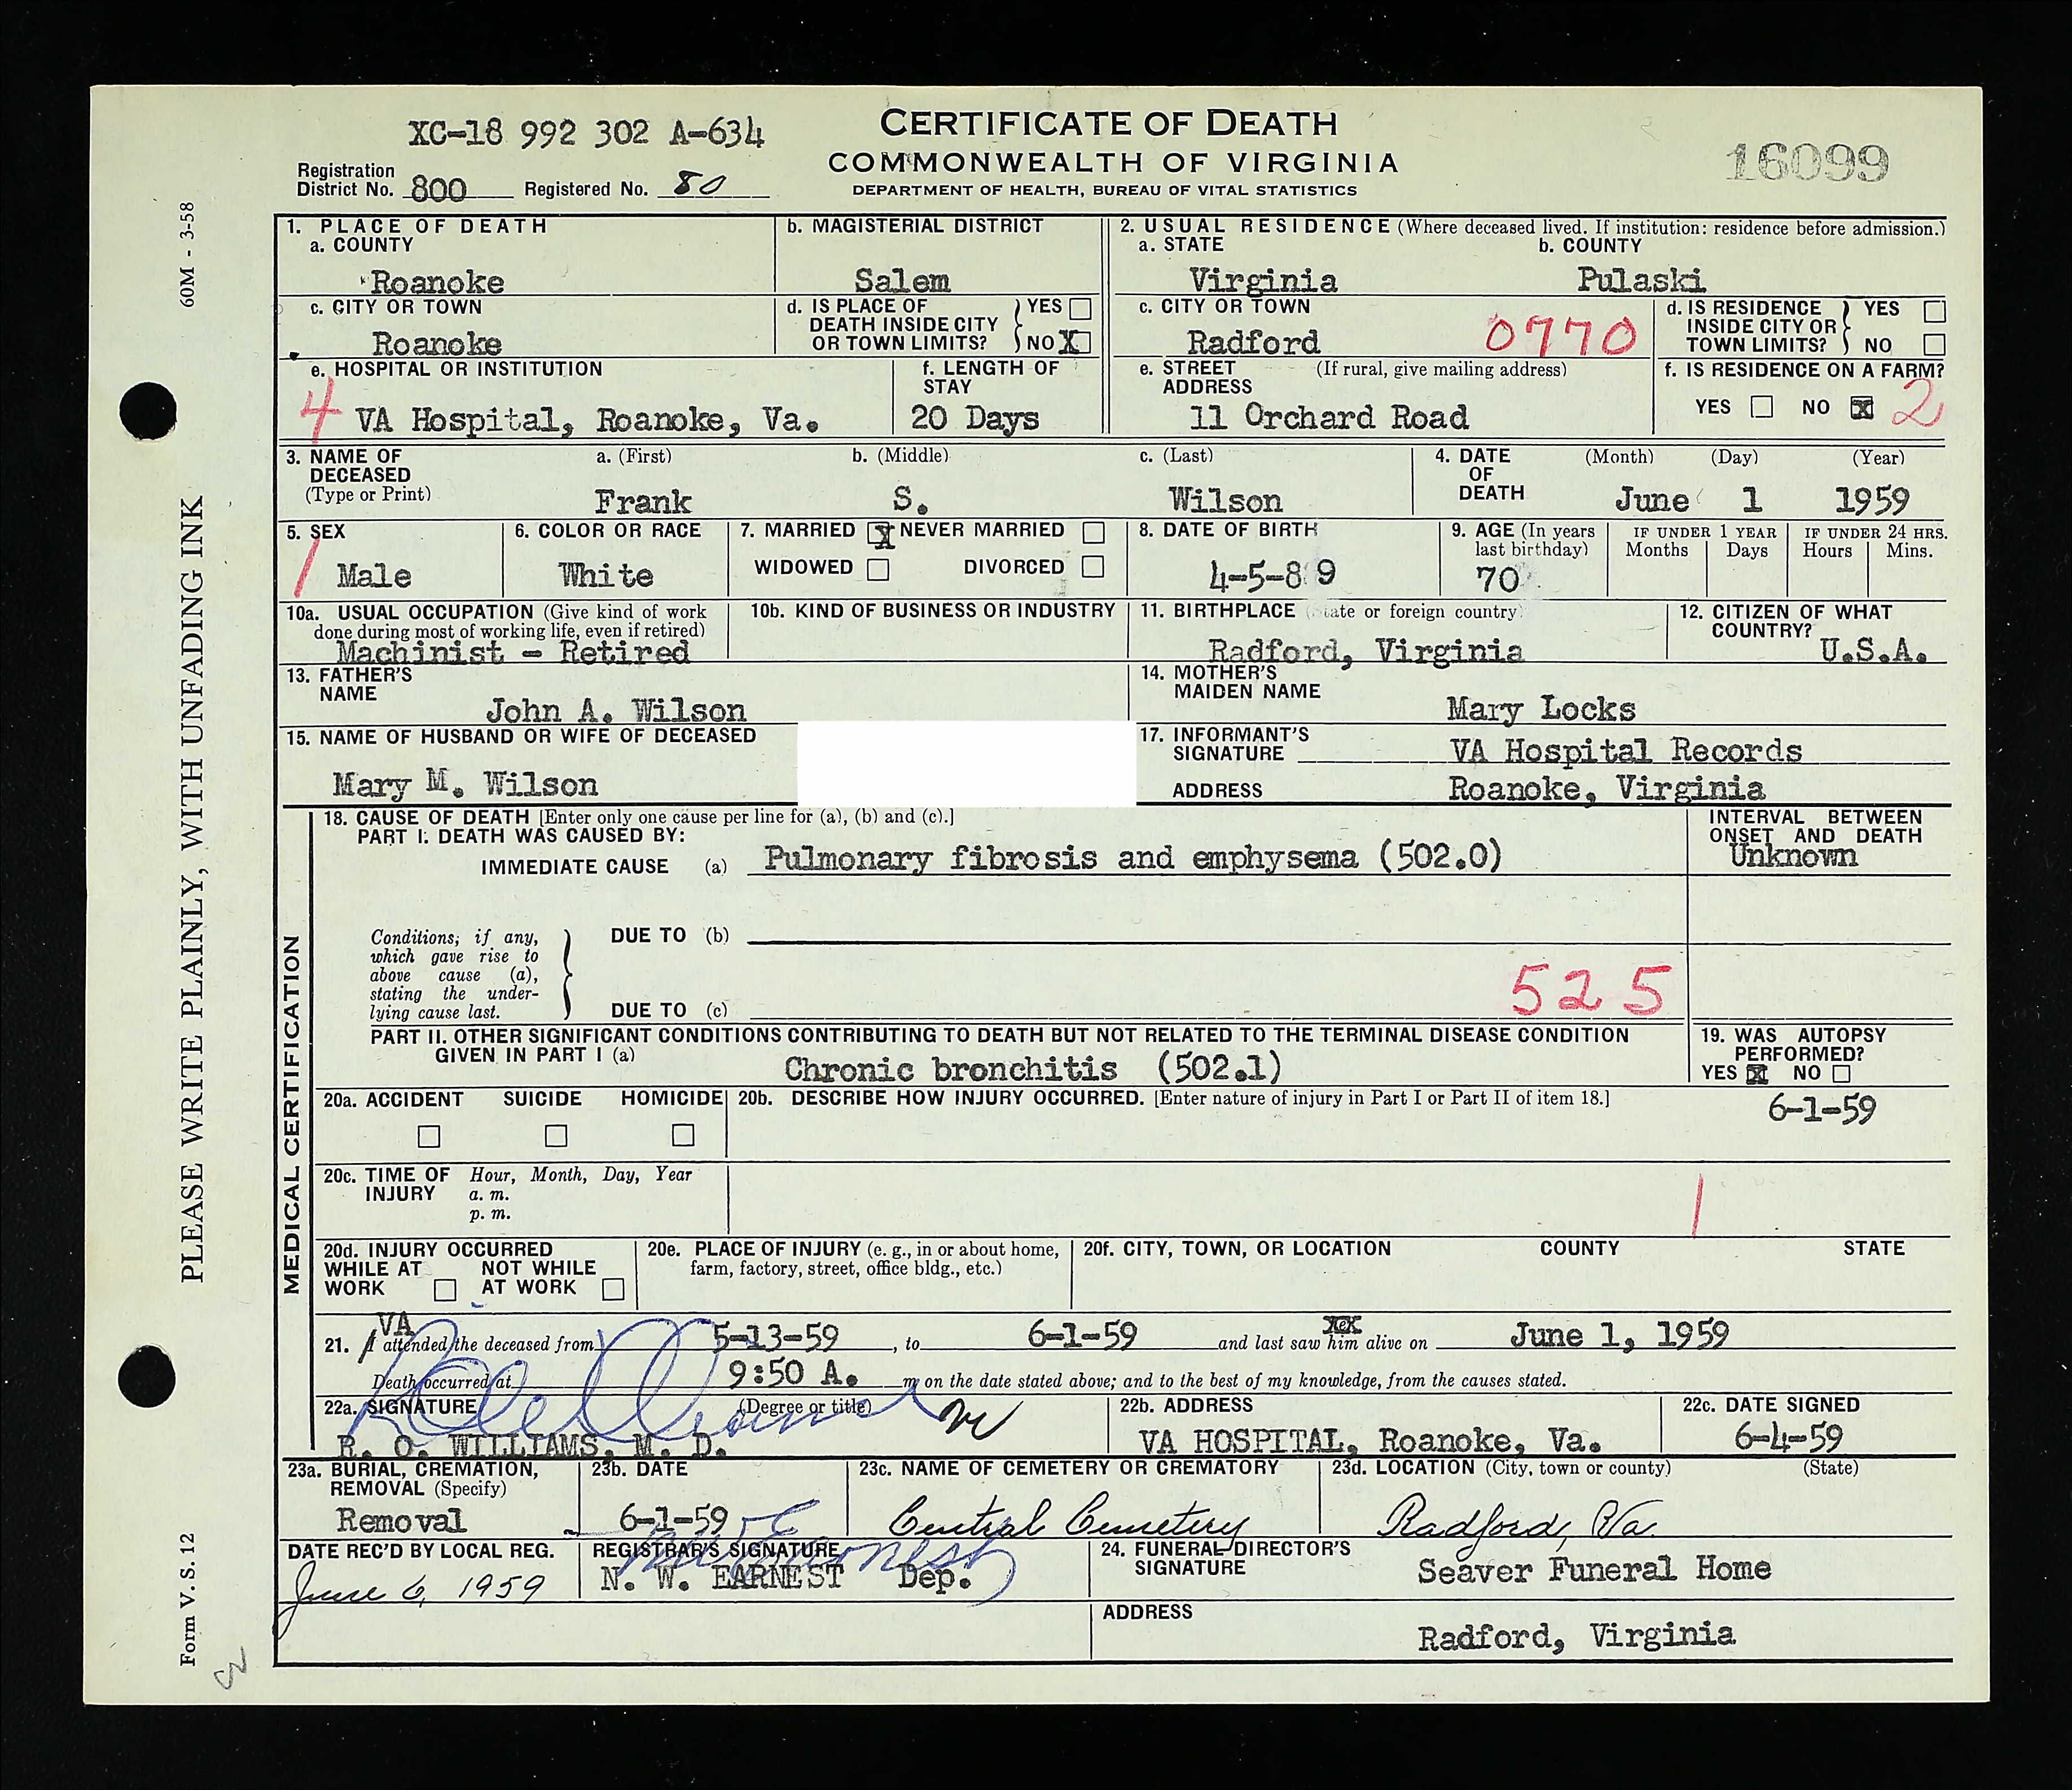 XC-18 992 302 A-634
CERTIFICATE OF DEATH
COMMONWEALTH OF VIRGINIA
DEPARTMENT OF HEALTH, BUREAU OF VITAL STATISTICS
16099
Registration District No. 800 Registered No. 80
60M - 3-58
PLEASE WRITE PLAINLY, WITH UNFADING INK
Form V. S. 12
1. PLACE OF DEATH
a. COUNTY
Roanoke
b. MAGISTERIAL DISTRICT
Salem
2. USUAL RESIDENCE (Where deceased lived. If institution: residence before admission.)
a. STATE
Virginia
b. COUNTY
Pulaski
c. CITY OR TOWN
Roanoke
d. IS PLACE OF DEATH INSIDE CITY OR TOWN LIMITS? YES NO X
c. CITY OR TOWN
Radford 0770
d. IS RESIDENCE INSIDE CITY OR TOWN LIMITS? YES NO
e. HOSPITAL OR INSTITUTION
4 VA Hospital, Roanoke, Va.
f. LENGTH OF STAY
20 Days
e. STREET ADDRESS (If rural, give mailing address)
11 Orchard Road
f. IS RESIDENCE ON A FARM?
YES NO X 2
3. NAME OF DECEASED (Type or Print)
a. (First) b. (Middle) c. (Last)
Frank S. Wilson
4. DATE OF DEATH (Month) (Day) (Year)
June 1 1959
5. SEX
1 Male
6. COLOR OR RACE
White
7. MARRIED X NEVER MARRIED
WIDOWED DIVORCED
8. DATE OF BIRTH
4-5-89
9. AGE (In years last birthday)
70
IF UNDER 1 YEAR
Months Days
IF UNDER 24 HRS.
Hours Mins.
10a. USUAL OCCUPATION (Give kind of work done during most of working life, even if retired)
Machinist - Retired
10b. KIND OF BUSINESS OR INDUSTRY
11. BIRTHPLACE (State or foreign country)
Radford, Virginia
12. CITIZEN OF WHAT COUNTRY?
U.S.A.
13. FATHER'S NAME
John A. Wilson
14. MOTHER'S MAIDEN NAME
Mary Locks
15. NAME OF HUSBAND OR WIFE OF DECEASED
Mary M. Wilson
17. INFORMANT'S SIGNATURE VA Hospital Records
ADDRESS Roanoke, Virginia
MEDICAL CERTIFICATION
18. CAUSE OF DEATH [Enter only one cause per line for (a), (b) and (c).]
PART I. DEATH WAS CAUSED BY:
IMMEDIATE CAUSE (a) Pulmonary fibrosis and emphysema (502.0)
INTERVAL BETWEEN ONSET AND DEATH
Unknown
Conditions, if any, which gave rise to above cause (a), stating the underlying cause last.
DUE TO (b)
DUE TO (c)
525
PART II. OTHER SIGNIFICANT CONDITIONS CONTRIBUTING TO DEATH BUT NOT RELATED TO THE TERMINAL DISEASE CONDITION GIVEN IN PART I (a)
Chronic bronchitis (502.1)
19. WAS AUTOPSY PERFORMED?
YES X NO
6-1-59
20a. ACCIDENT SUICIDE HOMICIDE
20b. DESCRIBE HOW INJURY OCCURRED. [Enter nature of injury in Part I or Part II of item 18.]
20c. TIME OF INJURY Hour, Month, Day, Year
a. m.
p. m.
1
20d. INJURY OCCURRED
WHILE AT WORK NOT WHILE AT WORK
20e. PLACE OF INJURY (e. g., in or about home, farm, factory, street, office bldg., etc.)
20f. CITY, TOWN, OR LOCATION COUNTY STATE
VA
21. I attended the deceased from 5-13-59, to 6-1-59 and last saw him alive on June 1, 1959
Death occurred at 9:50 A. m on the date stated above; and to the best of my knowledge, from the causes stated.
22a. SIGNATURE (Degree or title)
R. O. WILLIAMS, M. D.
22b. ADDRESS
VA HOSPITAL, Roanoke, Va.
22c. DATE SIGNED
6-4-59
23a. BURIAL, CREMATION, REMOVAL (Specify)
Removal
23b. DATE
6-1-59
23c. NAME OF CEMETERY OR CREMATORY
Central Cemetery
23d. LOCATION (City, town or county) (State)
Radford, Va.
DATE REC'D BY LOCAL REG.
June 6, 1959
REGISTRAR'S SIGNATURE
N. W. EARNEST Dep.
24. FUNERAL DIRECTOR'S SIGNATURE
Seaver Funeral Home
ADDRESS
Radford, Virginia